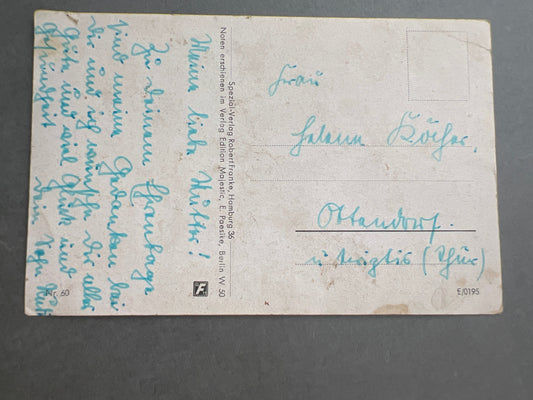 Meine liebe Mutter!
Zu deinem Ehrentage
sind meine Gedanken bei
dir und ich wünsche Dir alles
Gute und viel Glück und
Gesundheit
Dein Sohn
Nr. 60
Spezial-Verlag Robert Franke, Hamburg 36
Noten erschienen im Verlag Edition Majestic, E. Paesike, Berlin W 50
F
Frau
Helene Köcher,
Ottendorf.
(Thür)
E/0195